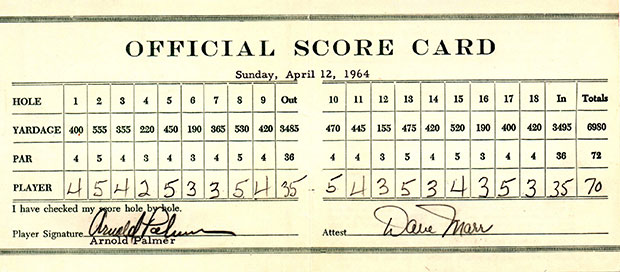 OFFICIAL SCORE CARD
Sunday, April 12, 1964
HOLE 1 2 3 4 5 6 7 8 9 Out 10 11 12 13 14 15 16 17 18 In Totals
YARDAGE 400 555 355 220 450 190 365 530 420 3485 470 445 155 475 420 520 190 400 420 3495 6980
PAR 4 5 4 3 4 3 4 5 4 36 4 4 3 5 4 5 3 4 4 36 72
PLAYER 4 5 4 2 5 3 3 5 4 35 - 5 4 3 5 3 4 3 5 3 35 70
I have checked my score hole by hole.
Player Signature Arnold Palmer Attest Dave Marr
Arnold Palmer